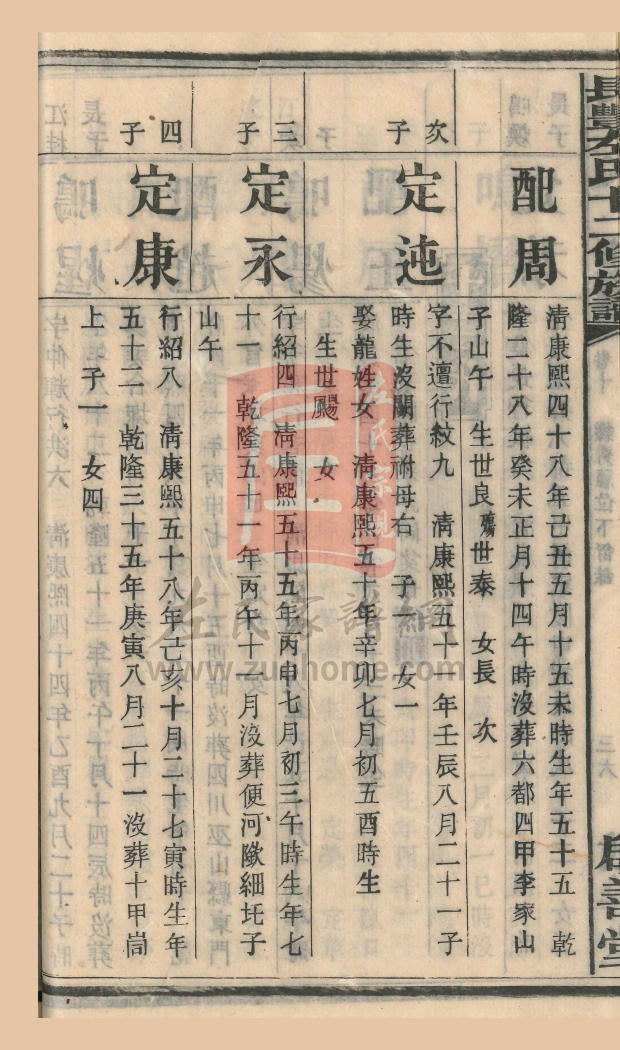 長豐左氏十二修族譜
三六
啟善堂
配周
清康熙四十八年己丑五月十五未時生年五十五 乾
隆二十八年癸未正月十四午時沒葬六都四甲李家山
子山午 生世良殤世泰 女長 次
次子
定迆
字不邅行紋九 清康熙五十一年壬辰八月二十一子
時生沒闕葬祔母右 子一 女一
娶龍姓女 清康熙五十年辛卯七月初五酉時生
生世颺 女
三子
定永
行紹四 清康熙五十五年丙申七月初三午時生年七
十一 乾隆五十一年丙午十一月沒葬便河墩細坵子
山午
四子
定康
行紹八 清康熙五十八年己亥十月二十七寅時生年
五十二 乾隆三十五年庚寅八月二十一沒葬十甲崗
上 子一 女四
左氏宗親
左氏家譜網
www.zuohome.com